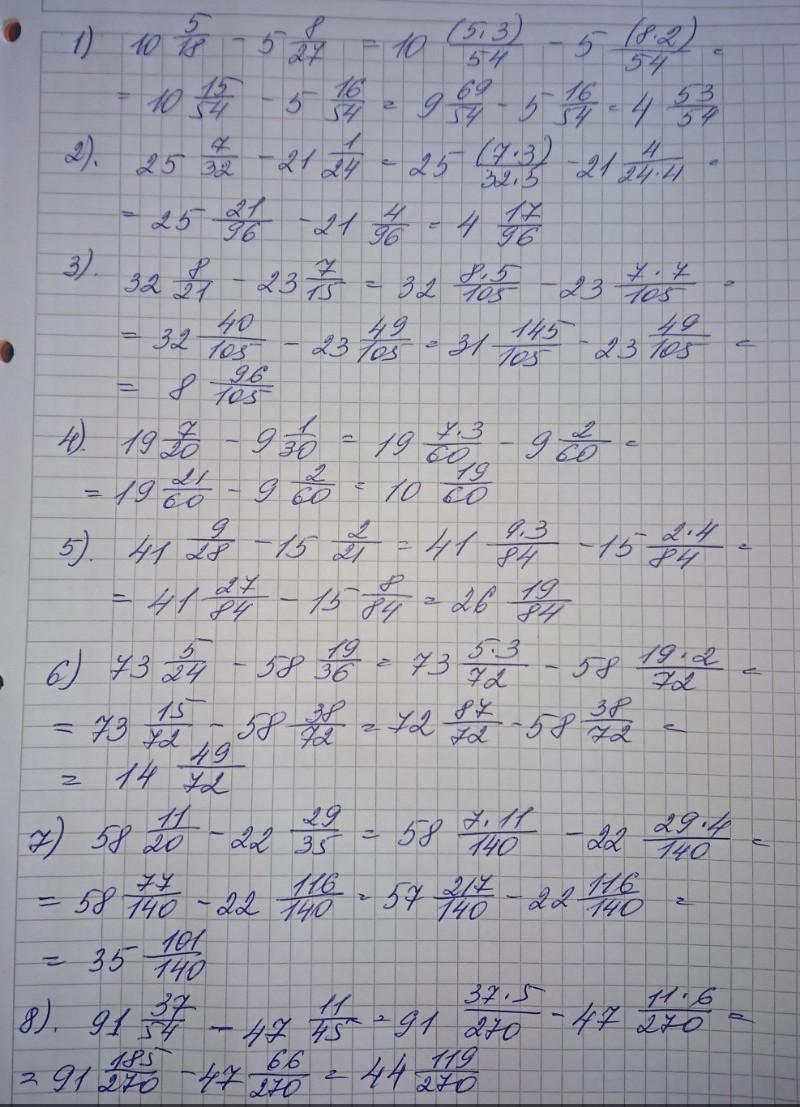 1) 10 5/18 - 5 8/27 = 10 (5·3)/54 - 5 (8·2)/54 =
= 10 15/54 - 5 16/54 = 9 69/54 - 5 16/54 = 4 53/54
2). 25 7/32 - 21 1/24 = 25 (7·3)/32·3 - 21 4/24·4 =
= 25 21/96 - 21 4/96 = 4 17/96
3). 32 8/21 - 23 7/15 = 32 8·5/105 - 23 7·7/105 =
= 32 40/105 - 23 49/105 = 31 145/105 - 23 49/105 =
= 8 96/105
4). 19 7/20 - 9 1/30 = 19 7·3/60 - 9 2/60 =
= 19 21/60 - 9 2/60 = 10 19/60
5). 41 9/28 - 15 2/21 = 41 9·3/84 - 15 2·4/84 =
= 41 27/84 - 15 8/84 = 26 19/84
6) 73 5/24 - 58 19/36 = 73 5·3/72 - 58 19·2/72 =
= 73 15/72 - 58 38/72 = 72 87/72 - 58 38/72 =
= 14 49/72
7) 58 11/20 - 22 29/35 = 58 7·11/140 - 22 29·4/140 =
= 58 77/140 - 22 116/140 = 57 217/140 - 22 116/140 =
= 35 101/140
8). 91 37/54 - 47 11/45 = 91 37·5/270 - 47 11·6/270 =
= 91 185/270 - 47 66/270 = 44 119/270